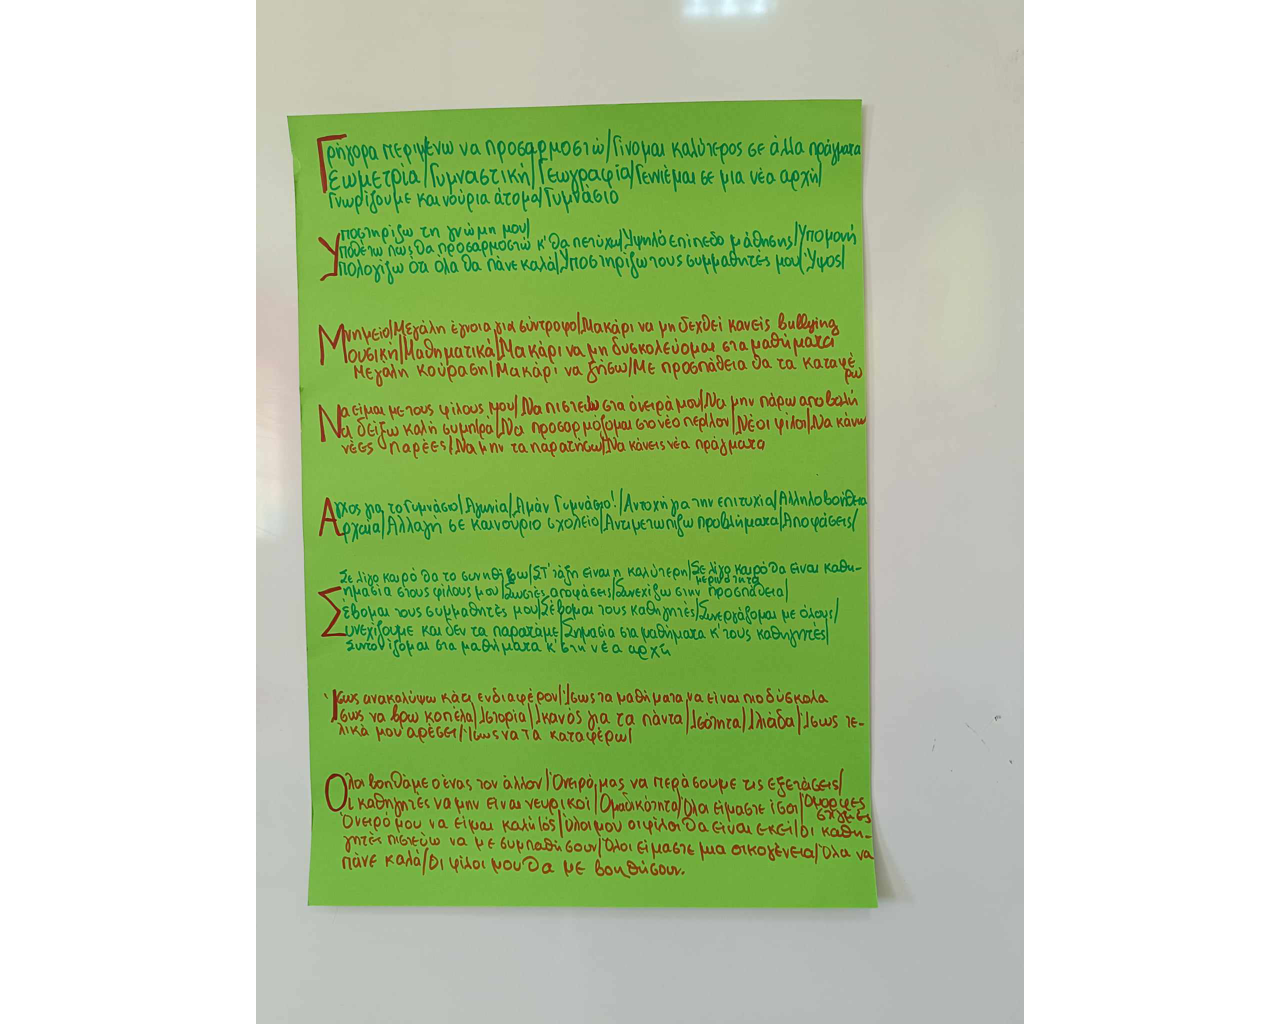 Γρήγορα περιμένω να προσαρμοστώ/Γίνομαι καλύτερος σε άλλα πράγματα
Γεωμετρία/Γυμναστική/Γεωγραφία/Γεννιέμαι σε μια νέα αρχή/
Γνωρίζουμε καινούρια άτομα/Γυμνάσιο
Υποστηρίζω τη γνώμη μου/
Υποθέτω πως θα προσαρμοστώ κ' θα πετύχω/Υψηλό επίπεδο μάθησης/Υπομονή
Υπολογίζω ότι όλα θα πάνε καλά/Υποστηρίζω τους συμμαθητές μου/Ύψος/
Μνημείο/Μεγάλη έγνοια για σύντροφο/Μακάρι να μη δεχθεί κανείς bullying
Μουσική/Μαθηματικά/Μακάρι να μη δυσκολεύομαι στα μαθήματα
Μεγάλη κούραση/Μακάρι να ζήσω/Με προσπάθεια θα τα καταφέρω
Να είμαι με τους φίλους μου/Να πιστεύω στα όνειρά μου/Να μην πάρω αποβολή
Να δείξω καλή συμπ/ρά/Να προσαρμόζομαι στο νέο περ/λον/Νέοι φίλοι/Να κάνω
νέες παρέες/Να μην τα παρατήσω/Να κάνεις νέα πράγματα
Άγχος για το Γυμνάσιο/Αγωνία/Αμάν Γυμνάσιο!/Αντοχή για την επιτυχία/Αλληλοβοήθεια
Αρχαία/Αλλαγή σε καινούριο σχολείο/Αντιμετωπίζω προβλήματα/Αποφάσεις/
Σε λίγο καιρό θα το συνηθίσω/ΣΤ' τάξη είναι η καλύτερη/Σε λίγο καιρό θα είναι καθημερινότητα
Σημασία στους φίλους μου/Σωστές αποφάσεις/Συνεχίζω στην προσπάθεια/
Σέβομαι τους συμμαθητές μου/Σέβομαι τους καθηγητές/Συνεργάζομαι με όλους/
Συνεχίζουμε και δεν τα παρατάμε/Σημασία στα μαθήματα κ' τους καθηγητές/
Συντονίζομαι στα μαθήματα κ' στη νέα αρχή
Ίσως ανακαλύψω κάτι ενδιαφέρον/Ίσως τα μαθήματα να είναι πιο δύσκολα
Ίσως να βρω κοπέλα/Ιστορία/Ικανός για τα πάντα/Ισότητα/Ιλιάδα/Ίσως τε-
λικά μου αρέσει/Ίσως να τα καταφέρω/
Όλοι βοηθάμε ο ένας τον άλλον/Όνειρό μας να περάσουμε τις εξετάσεις/
Οι καθηγητές να μην είναι νευρικοί/Ομαδικότητα/Όλοι είμαστε ίσοι/Όμορφες στιγμές
Όνειρό μου να είμαι καλή/ός/Όλοι μου οι φίλοι θα είναι εκεί/Οι καθη-
γητές πιστεύω να με συμπαθήσουν/Όλοι είμαστε μια οικογένεια/Όλα να
πάνε καλά/Οι φίλοι μου θα με βοηθήσουν.